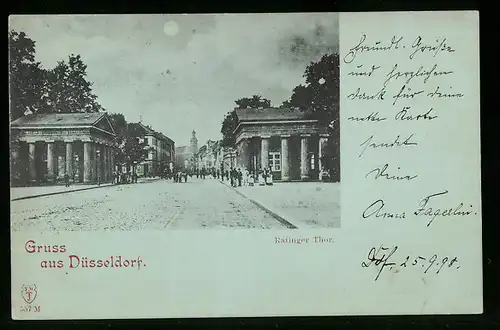 Freundl. Grüße
und herzlichen
Dank für deine
nette Karte
sendet
Deine
Anna Fagerlin.
Ddf 25.9.98.
Ratinger Thor.
Gruss
aus Düsseldorf.
557 M